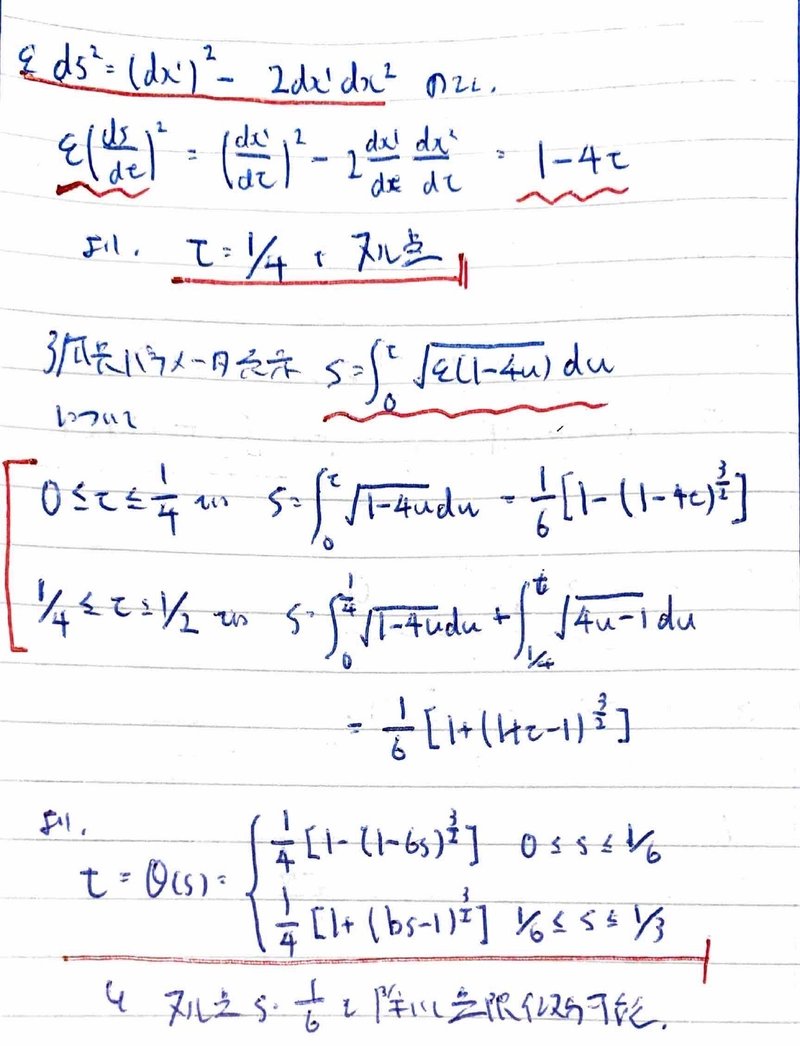 ε ds² = (dx¹)² − 2dx¹dx² のとき.
ε(ds/dτ)² = (dx¹/dτ)² − 2 dx¹/dτ dx²/dτ = 1−4τ
より. τ = 1/4 で ヌル点
弧長パラメータ表示 s = ∫₀^τ √(ε(1−4u)) du
について
0 ≤ τ ≤ 1/4 では s = ∫₀^τ √(1−4u) du = 1/6 [1−(1−4τ)^(3/2)]
1/4 ≤ τ ≤ 1/2 では s = ∫₀^(1/4) √(1−4u) du + ∫_(1/4)^τ √(4u−1) du
= 1/6 [1+(4τ−1)^(3/2)]
より.
τ = θ(s) = { 1/4 [1−(1−6s)^(3/2)] 0 ≤ s ≤ 1/6
1/4 [1+(6s−1)^(3/2)] 1/6 ≤ s ≤ 1/3
ヌル点 s = 1/6 を除いて無限化可能.